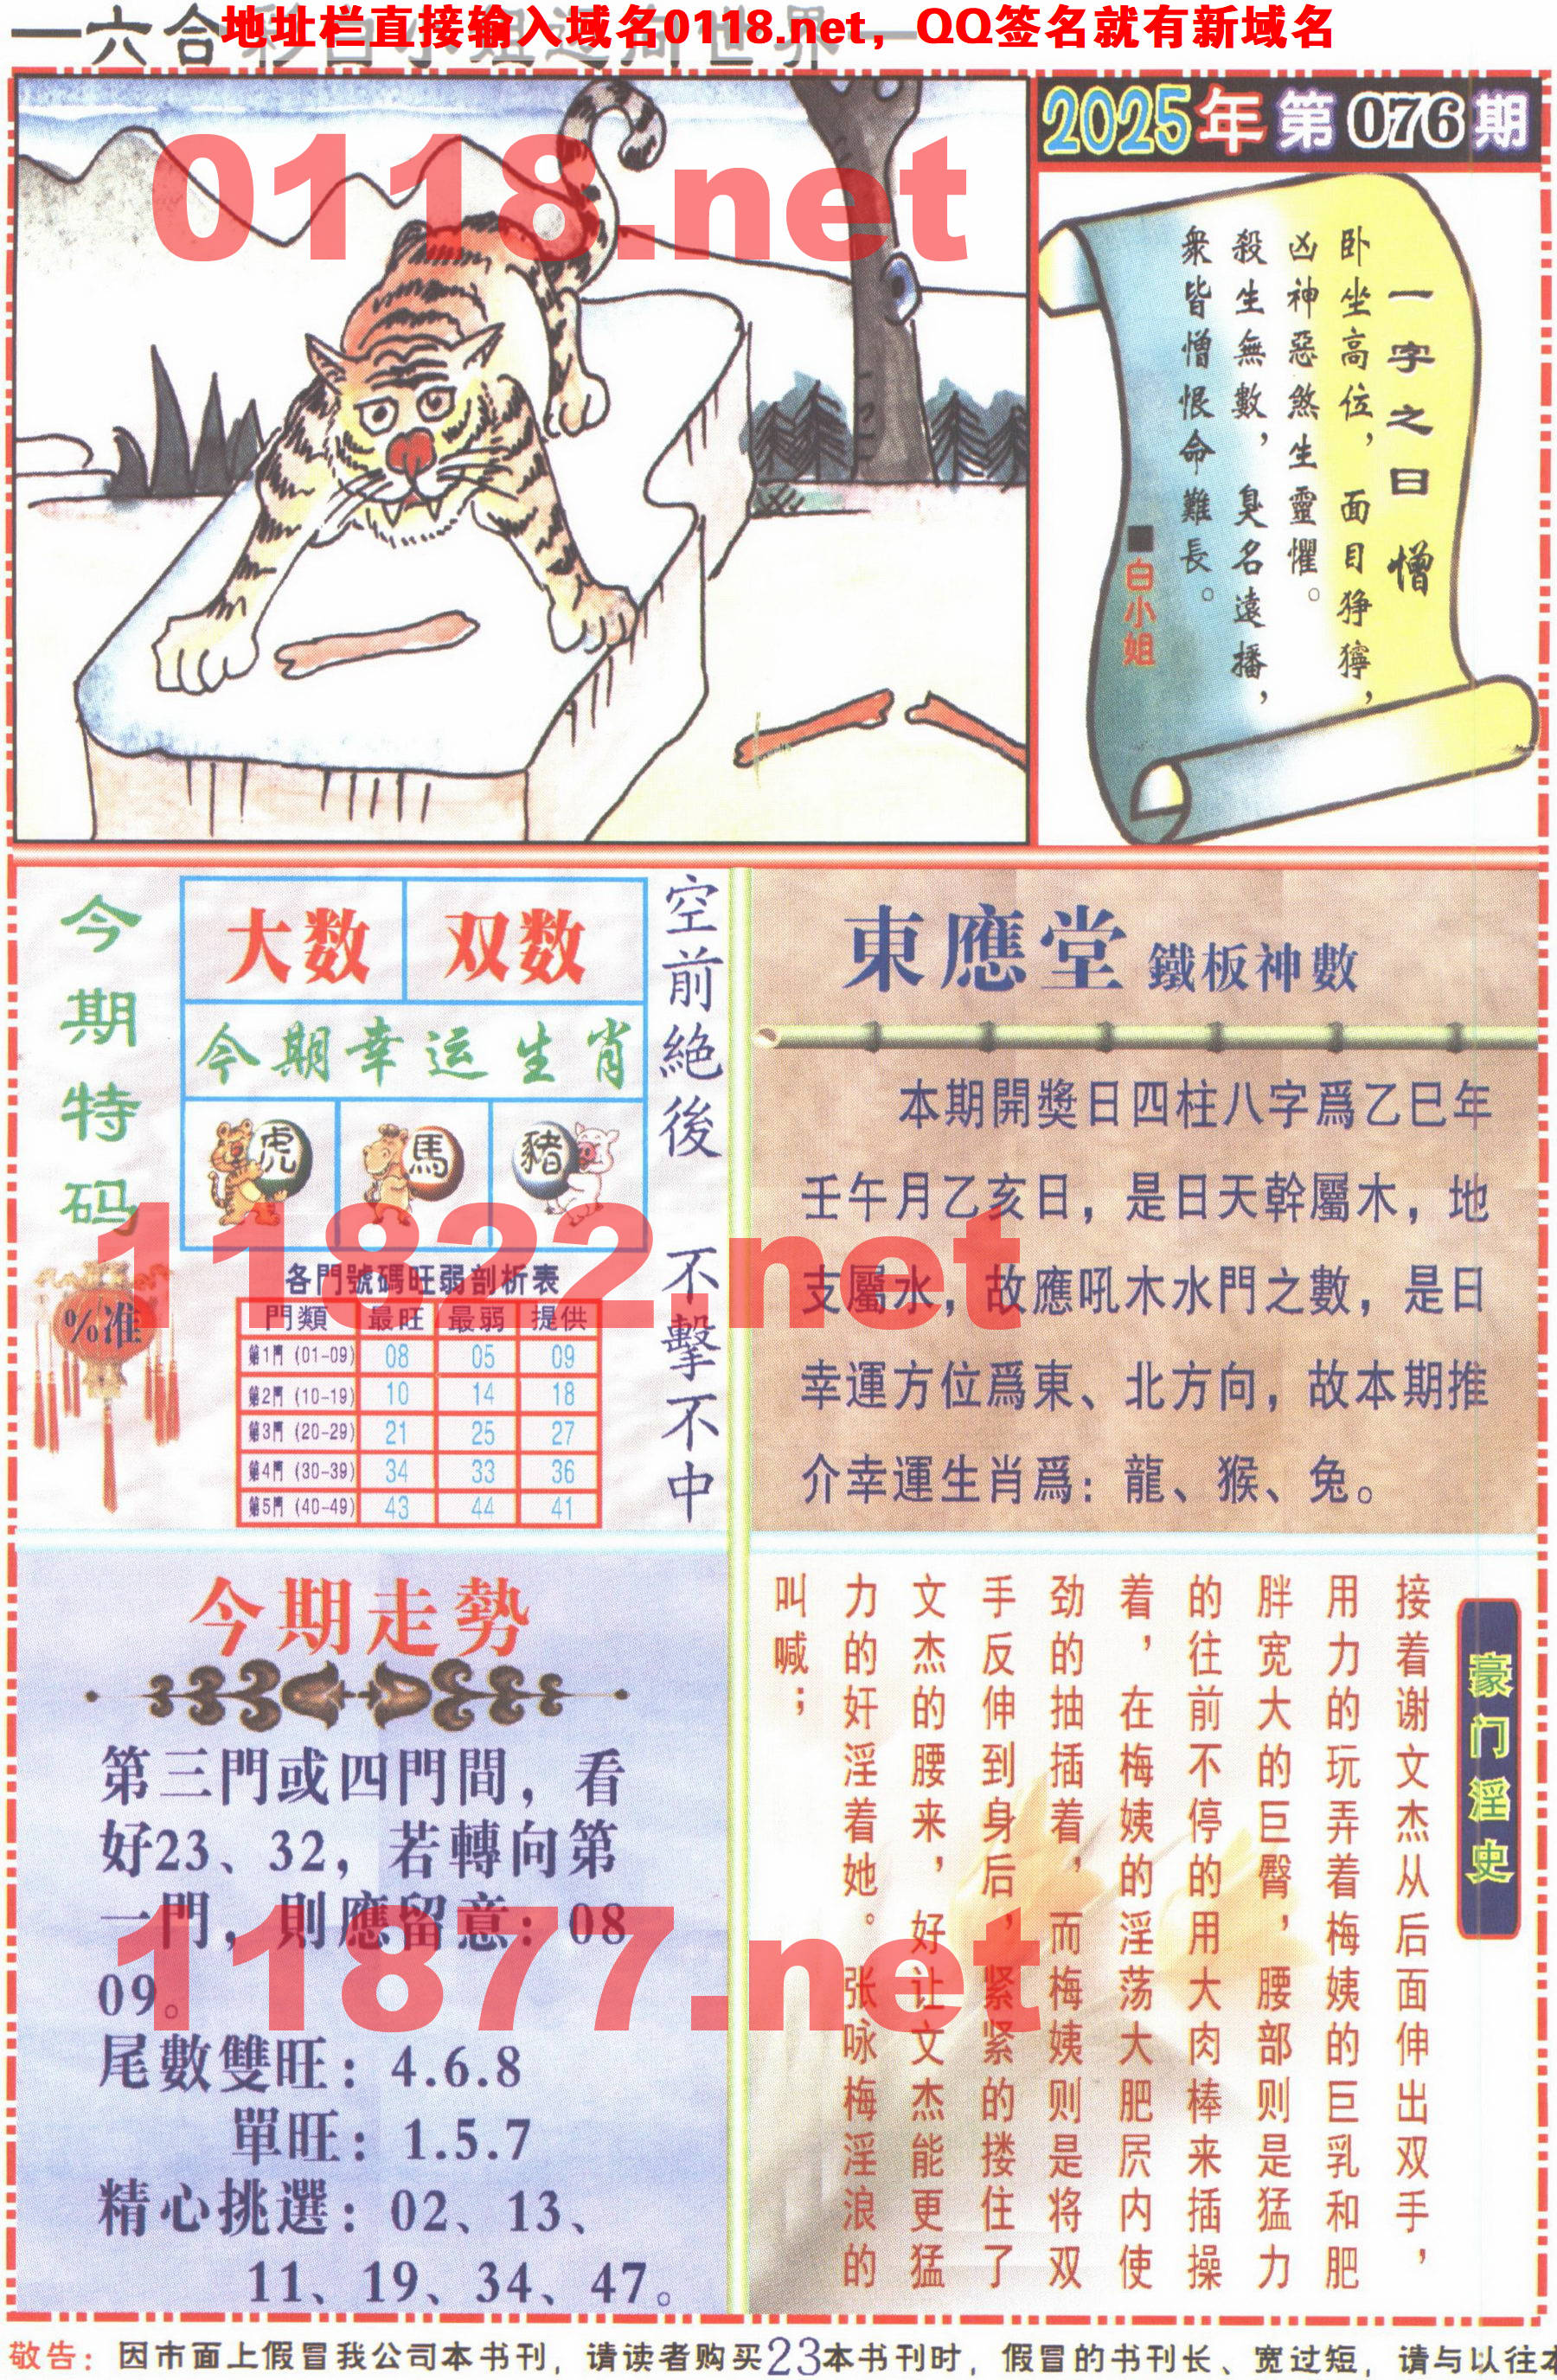 一六合彩白小姐透向世界一
地址栏直接输入域名0118.net，QQ签名就有新域名
0118.net
2025年第076期
一字之曰 憎
卧坐高位，面目狰獰，
凶神惡煞生靈懼。
殺生無數，臭名遠播，
衆皆憎恨命難長。
■白小姐
今期特码
%准
大数 双数
今期幸运生肖
虎 馬 豬
空前絕後 不擊不中
各門號碼旺弱剖析表
門類 最旺 最弱 提供
第1門 (01-09) 08 05 09
第2門 (10-19) 10 14 18
第3門 (20-29) 21 25 27
第4門 (30-39) 34 33 36
第5門 (40-49) 43 44 41
東應堂 鐵板神數
本期開獎日四柱八字爲乙巳年
壬午月乙亥日，是日天幹屬木，地
支屬水，故應吼木水門之數，是日
幸運方位爲東、北方向，故本期推
介幸運生肖爲：龍、猴、兔。
11822.net
今期走勢
第三門或四門間，看
好23、32，若轉向第
一門，則應留意：08
09。
尾數雙旺：4.6.8
單旺：1.5.7
精心挑選：02、13、
11、19、34、47。
11877.net
豪门淫史
接着谢文杰从后面伸出双手，
用力的玩弄着梅姨的巨乳和肥
胖宽大的巨臀，腰部则是猛力
的往前不停的用大肉棒来插操
着，在梅姨的淫荡大肥内使
劲的抽插着，而梅姨则是将双
手反伸到身后，紧紧的搂住了
文杰的腰来，好让文杰能更猛
力的奸淫着她。张咏梅淫浪的
叫喊；
敬告：因市面上假冒我公司本书刊，请读者购买23本书刊时，假冒的书刊长、宽过短，请与以往本